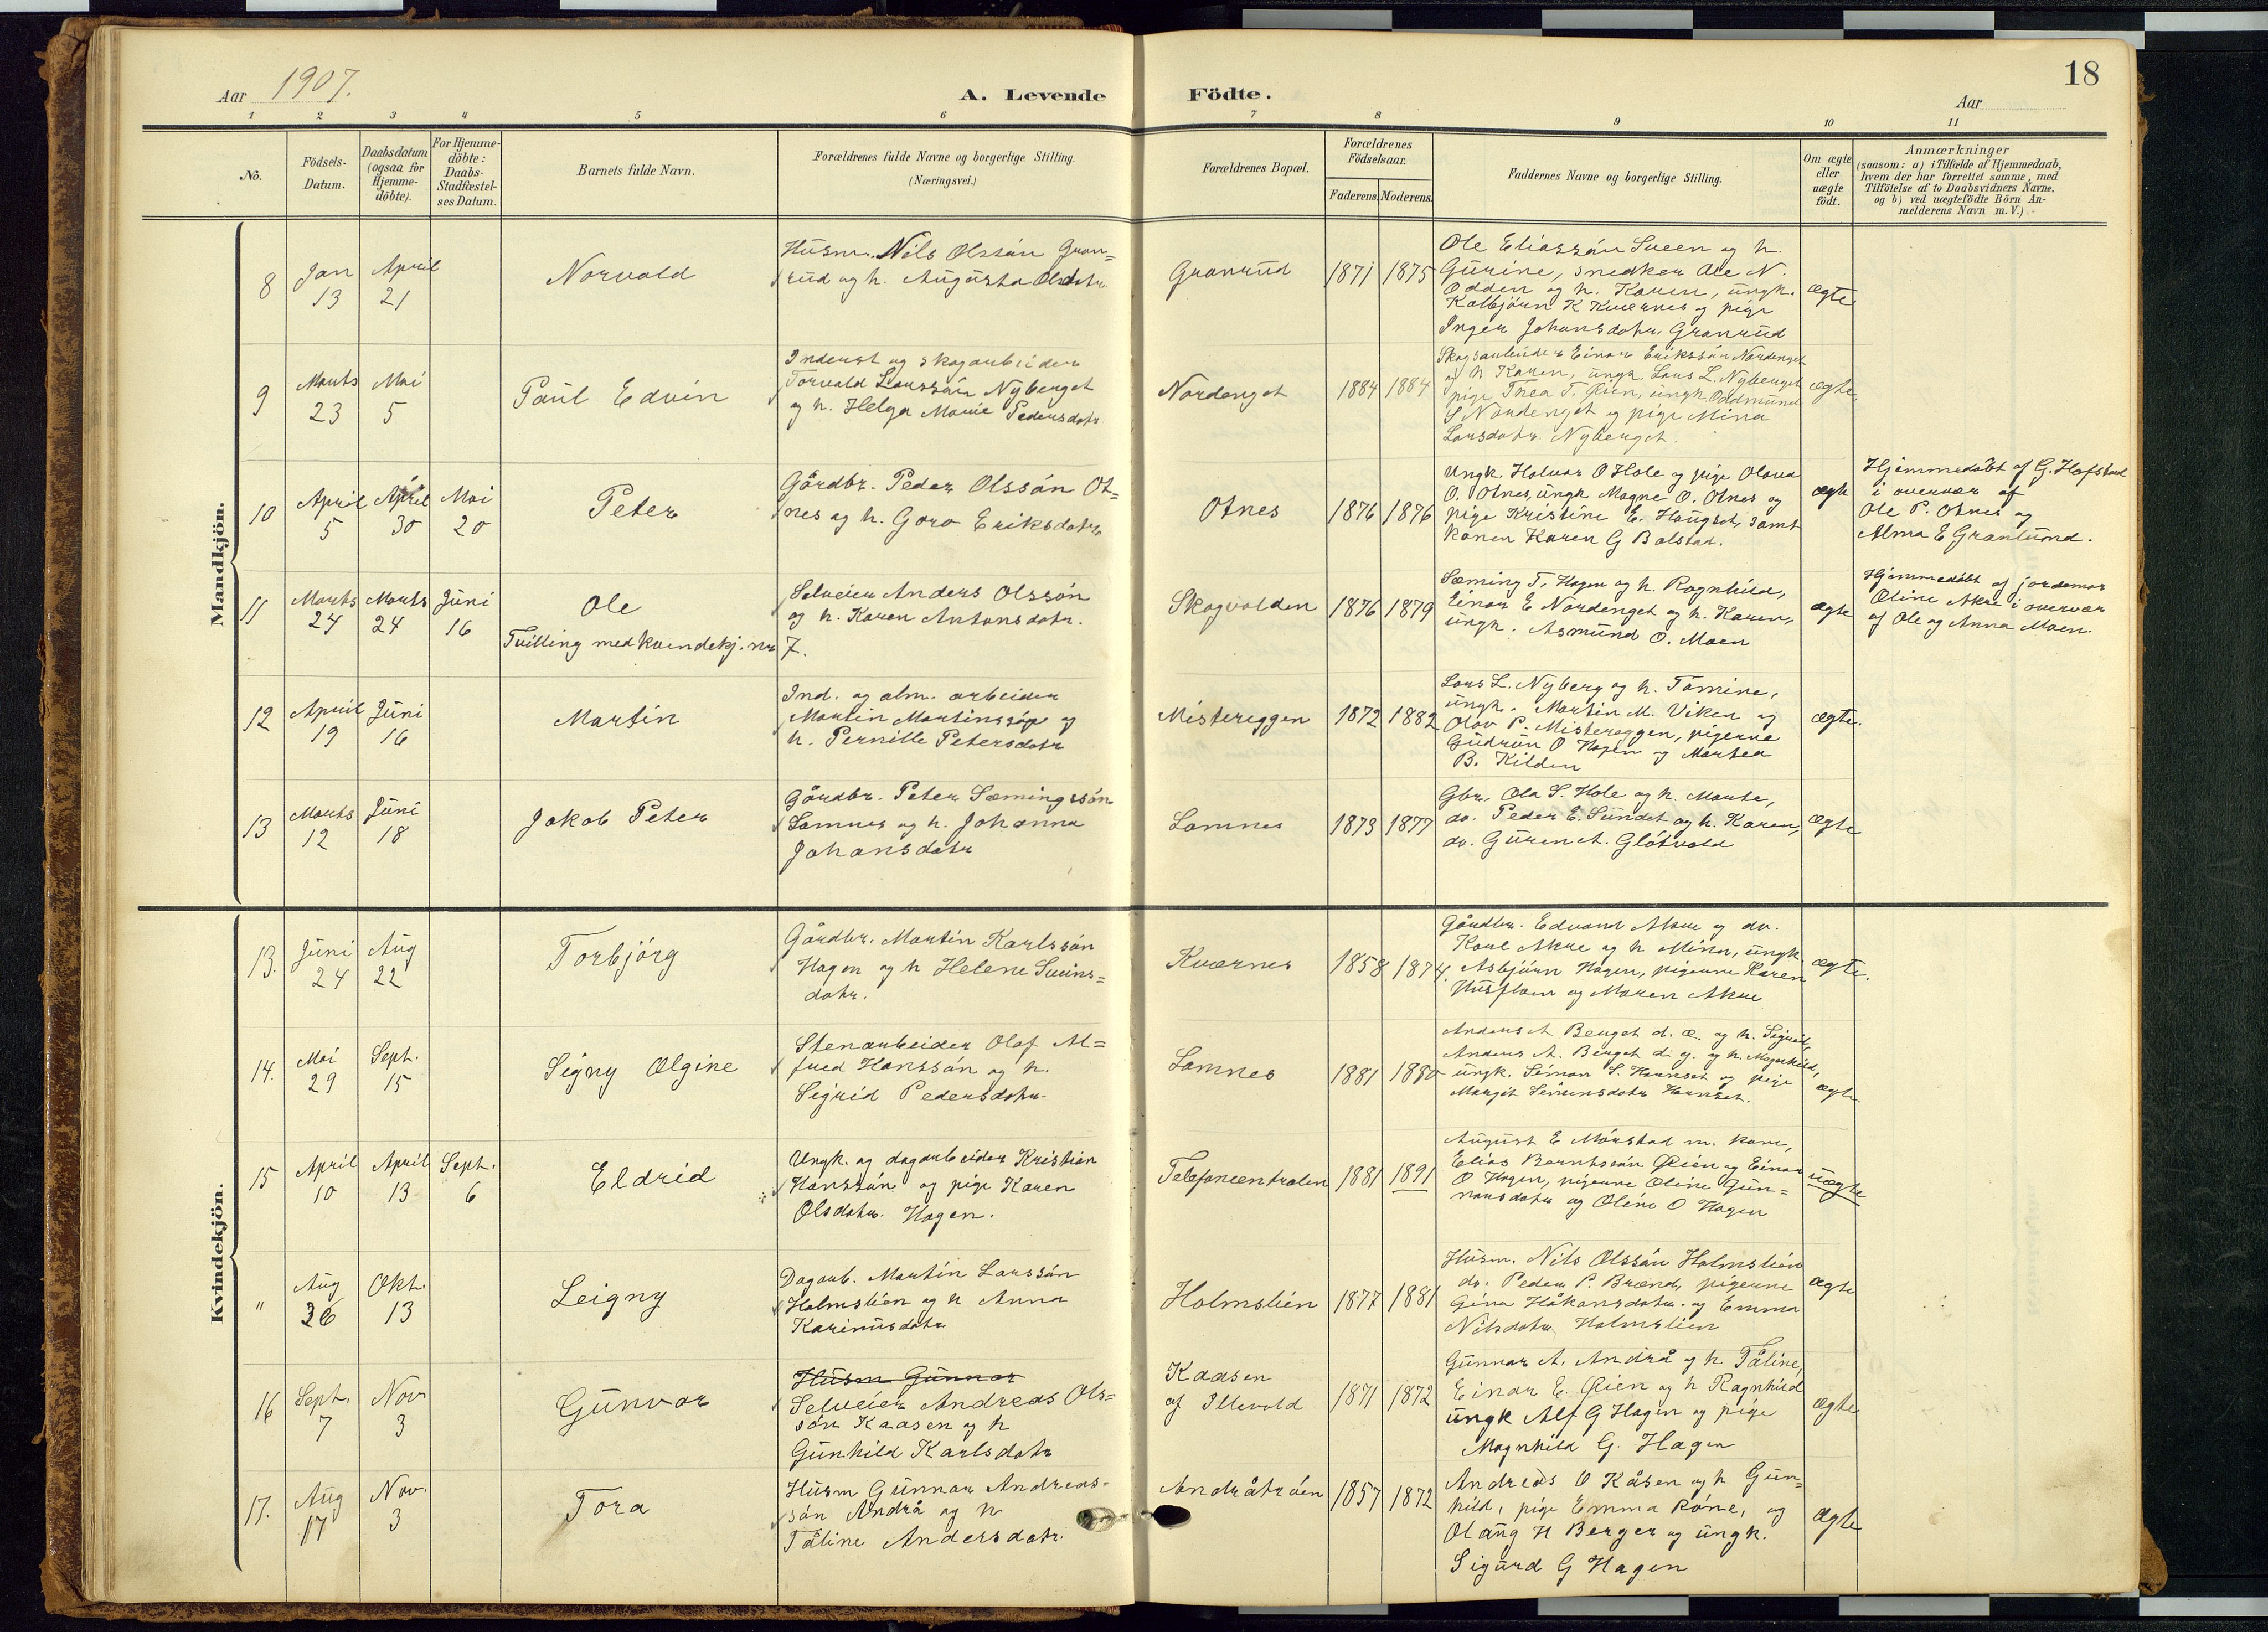 Aar 1907. A. Levende Födte. Aar 18
1 2 3 4 5 6 7 8 9 10 11
No.
Födsels-
Datum.
Daabsdatum
(ogsaa for
Hjemme-
döbte).
For Hjemme-
döbte:
Daabs-
Stadfæstel-
ses Datum.
Barnets fulde Navn.
Forældrenes fulde Navne og borgerlige Stilling.
(Næringsvei.)
Forældrenes Bopæl.
Forældrenes
Födselsaar.
Faderens. Moderens.
Faddernes Navne og borgerlige Stilling.
Om ægte
eller
uægte
födt.
Anmærkninger
(saasom: a) i Tilfælde af Hjemmedaab,
hvem der har forrettet samme, med
Tilföielse af to Daabsvidners Navne,
og b) ved uægtefödte Börn An-
melderens Navn m. V.)
Mandkjön.
8
Jan
13
April
21
Norvald
Husm. Nils Olssön Gran=
rud og h. Augusta Olsdatr
Granrud
1871 1875
Ole Eliassön Sveen og h.
Gurine, snedker Ole N.
Odden og h. Karen, ungk.
Kolbjörn K Kværnes og pige
Inger Johansdatr. Granrud
ægte
9
Marts
23
Mai
5
Paul Edvin
Inderst og skogarbeider
Torvald Larssön Nyberget
og h. Helga Marie Pedersdatr
Nordenget
1884 1884
Skogsarbeider Einar Erikssön Nordenget
og h Karen, ungk. Lars L. Nyberget
pige Thea T. Öien, ungk Oddmund
S. Nordenget og pige Mina
Larsdatr. Nyberget.
ægte
10
April
5
April
30
Mai
20
Peter
Gårdbr. Peder Olssön Ot=
nes og h. Goro Eriksdatr
Otnes
1876 1876
Ungk. Halvar O Hole og pige Olava
O. Otnes, ungk Magne O. Otnes og
pige Kristine E. Haugset, samt
konen Karen G Bolstad.
ægte
Hjemmedöbt af G. Hofstad
i overvær af
Ole P. Otnes og
Alma E Granlund.
11
Marts
24
Marts
24
Juni
16
Ole
Tvilling med kvindekj. nr 7.
Selveier Anders Olssön
og h. Karen Antonsdatr.
Skogvolden
1876 1879
Sæming T. Hagen og h. Ragnhild,
Einar E Nordenget og h. Karen,
ungk. Asmund O. Moen
ægte
Hjemmedöbt af jordemor
Oline Akre i overvær
af Ole og Anna Moen.
12
April
19
Juni
16
Martin
Ind. og alm. arbeider
Martin Martinssön og
h. Pernille Petersdatr
Mistereggen
1872 1882
Lars L. Nyberg og h. Tomine,
ungk. Martin M. Viken og
Olav P. Mistereggen, pigerne
Gudrun O Hagen og Martea
B. Kilden
ægte.
13
Marts
12
Juni
18
Jakob Peter
Gårdbr. Peter Sæmingssön
Lomnes og h. Johanna
Johansdatr
Lomnes
1873 1877
Gbr. Ola S. Hole og h. Marte,
do. Peder E. Sundet og h. Karen,
do. Guren A. Glötvold
ægte
Kvindekjön.
13.
Juni
24
Aug
22
Torbjörg
Gårdbr. Martin Karlssön
Hagen og h Helene Sveins=
datr.
Kværnes
1858 1874.
Gårdbr. Edvard Akre og do.
Karl Akre og h Mina, ungk
Asbjörn Hagen, pigerne Karen
Husfloen og Maren Akre
ægte.
14.
Mai
29
Sept.
15
Signy Olgine
Stenarbeider Olaf Al=
fred Hanssön og h.
Sigrid Pedersdatr
Lomnes
1881 1880
Anders A Berget d. æ. og h. Sigrid,
Anders A. Berget d. y. og h. Magnhild,
ungk. Simon S. Hornset og pige
Margit Simensdatr Hornset.
ægte.
15
April
10
April
13
Sept.
6
Eldrid
Ungk. og dagarbeider Kristian
Hanssön og pige Karen
Olsdatr. Hagen.
Telefoncentralen
1881 1891
August E Mörstad m. kone,
Elias Berntssön Öien og Einar
O Hagen, pigerne Oline Gun=
narsdatr og Oline O Hagen
uægte
"
Aug
26
Okt.
13
Leigny
Dagarb. Martin Larssön
Holmslien og h Anna
Karinusdatr
Holmslien
1877 1881
Husm. Nils Olssön Holmslien
do. Peder P. Brænd, pigerne
Gina Håkansdatr. og Emma
Nilsdatr Holmslien
ægte
16
Sept.
7
Nov
3
Gunvor
Husm Gunnar
Selveier Andreas Ols=
sön Kaasen og h
Gunhild Karlsdatr
Kaasen
af Illevold
1871 1872
Gunnar A. Andrå og h Tåline,
Einar E. Öien og h Ragnhild
ungk Alf G Hagen og pige
Magnhild G. Hagen
ægte
17.
Aug
17
Nov.
3
Tora
Husm Gunnar Andreas-
sön Andrå og h
Tåline Andersdatr.
Andråtröen
1857 1872
Andreas O Kåsen og h Gun=
hild, pige Emma Röne, og
Olaug H Berger og ungk.
Sigurd G Hagen
ægte